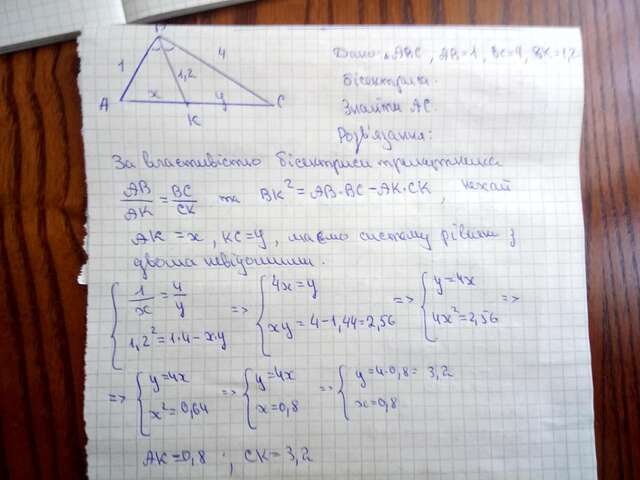 B
1
4
1,2
A
x
y
C
K
Дано: △ABC, AB=1, BC=4, BK=1,2
бісектриса.
Знайти AC.
Розв'язання:
За властивістю бісектриси трикутника
AB/AK = BC/CK та BK² = AB·BC − AK·CK, нехай
AK = x, KC = y, маємо систему рівнянь з
двома невідомими.
{ 1/x = 4/y => { 4x = y => { y = 4x =>
1,2² = 1·4 − x·y xy = 4 − 1,44 = 2,56 4x² = 2,56
=> { y = 4x => { y = 4x => { y = 4·0,8 = 3,2
x² = 0,64 x = 0,8 x = 0,8
AK = 0,8 ; CK = 3,2